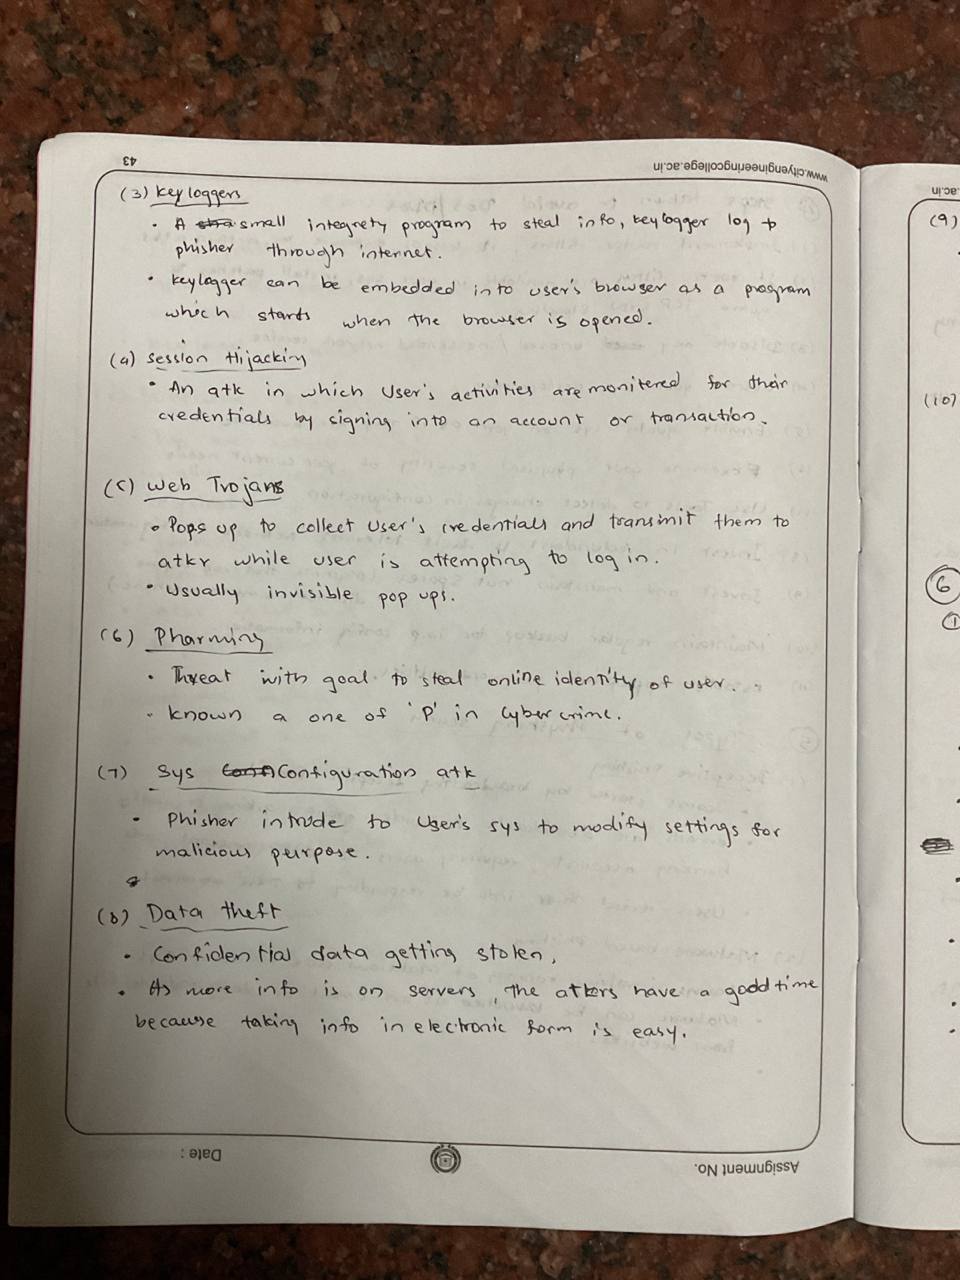 43
www.cityengineeringcollege.ac.in
(3) Keyloggers
• A small integrety program to steal info, keylogger log to
phisher through internet.
• Keylogger can be embedded into user's browser as a program
which starts when the browser is opened.
(4) Session Hijacking
• An atk in which User's activities are monitered for their
credentials by signing into an account or transaction.
(5) Web Trojans
• Pops up to collect User's credentials and transmit them to
atkr while user is attempting to log in.
• Usually invisible pop ups.
(6) Pharming
• Threat with goal to steal online identity of user.
• Known a one of 'P' in Cyber crime.
(7) Sys Configuration atk
• Phisher intrude to User's sys to modify settings for
malicious purpose.
(8) Data theft
• Confidential data getting stolen,
• As more info is on servers, the atkers have a good time
because taking info in electronic form is easy.
Date :
Assignment No.
ac.in
(9)
(10)
6
1